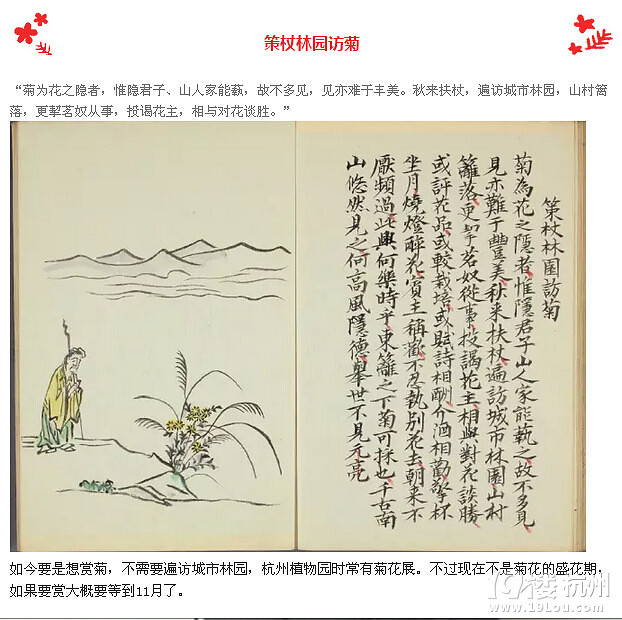 策杖林园访菊
“菊为花之隐者，惟隐君子、山人家能蓺，故不多见，见亦难于丰美。秋来扶杖，遍访城市林园，山村篱
落，更挈茗奴从事，投谒花主，相与对花谈胜。”
策杖林園訪菊
菊為花之隱者惟隱君子山人家能藝之故不多見
見亦難于豐美秋来扶杖遍訪城市林園山村
籬落更挈茗奴從事投謁花主相與對花談勝
或評花品或較栽培或賦詩相酬介酒相勸擎杯
坐月燒燈醉花賓主稱歡不忍執別花去朝来不
厭頻過此興何樂時乎東籬之下菊可採也千古南
山悠然見之何高風隱德舉世不見元亮
如今要是想赏菊，不需要遍访城市林园，杭州植物园时常有菊花展。不过现在不是菊花的盛花期，
如果要赏大概要等到11月了。
19楼杭州
www.19lou.com